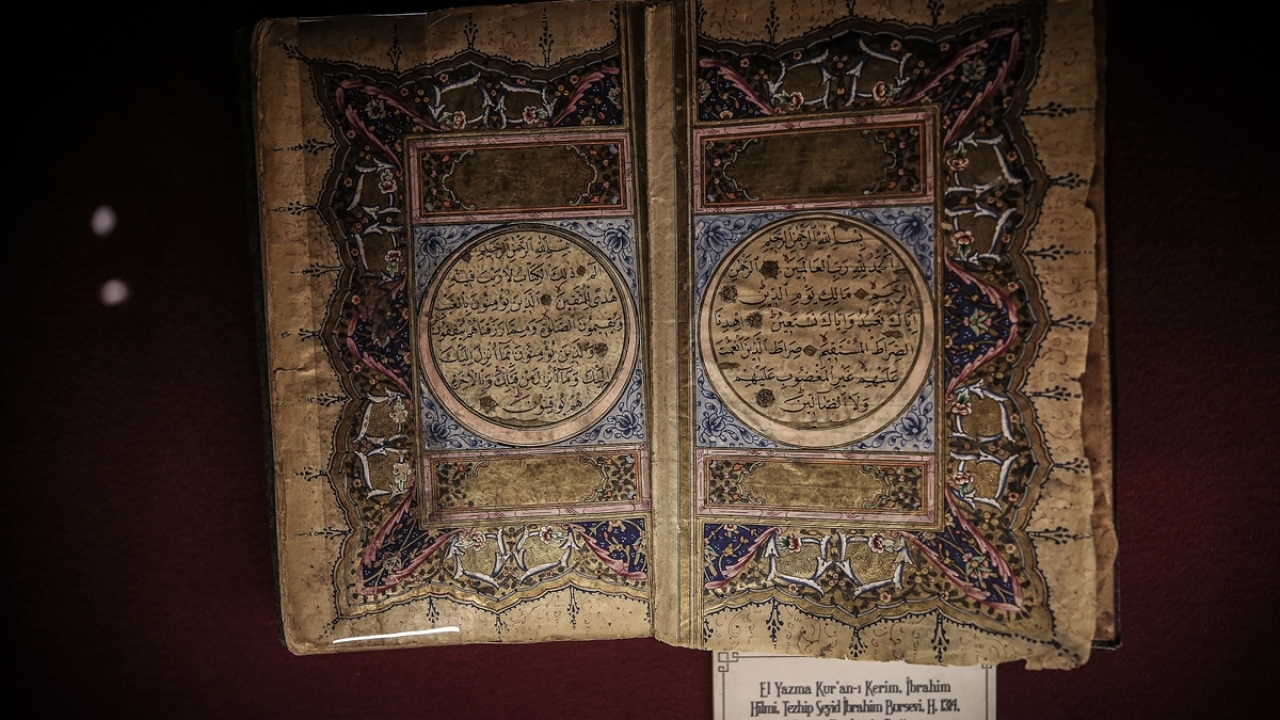 بسم الله الرحمن الرحيم
الحمد لله رب العالمين الرحمن
الرحيم مالك يوم الدين
اياك نعبد واياك نستعين اهدنا
الصراط المستقيم صراط الذين انعمت
عليهم غير المغضوب عليهم
ولا الضالين
بسم الله الرحمن الرحيم
الم ذلك الكتاب لا ريب فيه
هدى للمتقين الذين يؤمنون بالغيب
ويقيمون الصلوة ومما رزقناهم ينفقون
والذين يؤمنون بما انزل اليك
وما انزل من قبلك وبالاخرة
هم يوقنون
El Yazma Kur'an-ı Kerim, İbrahim
Hilmi, Tezhip Seyid İbrahim Bursevi, H. 1314,